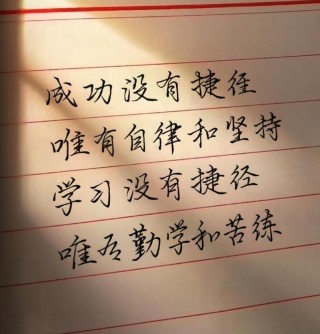 成功没有捷径
唯有自律和坚持
学习没有捷径
唯有勤学和苦练